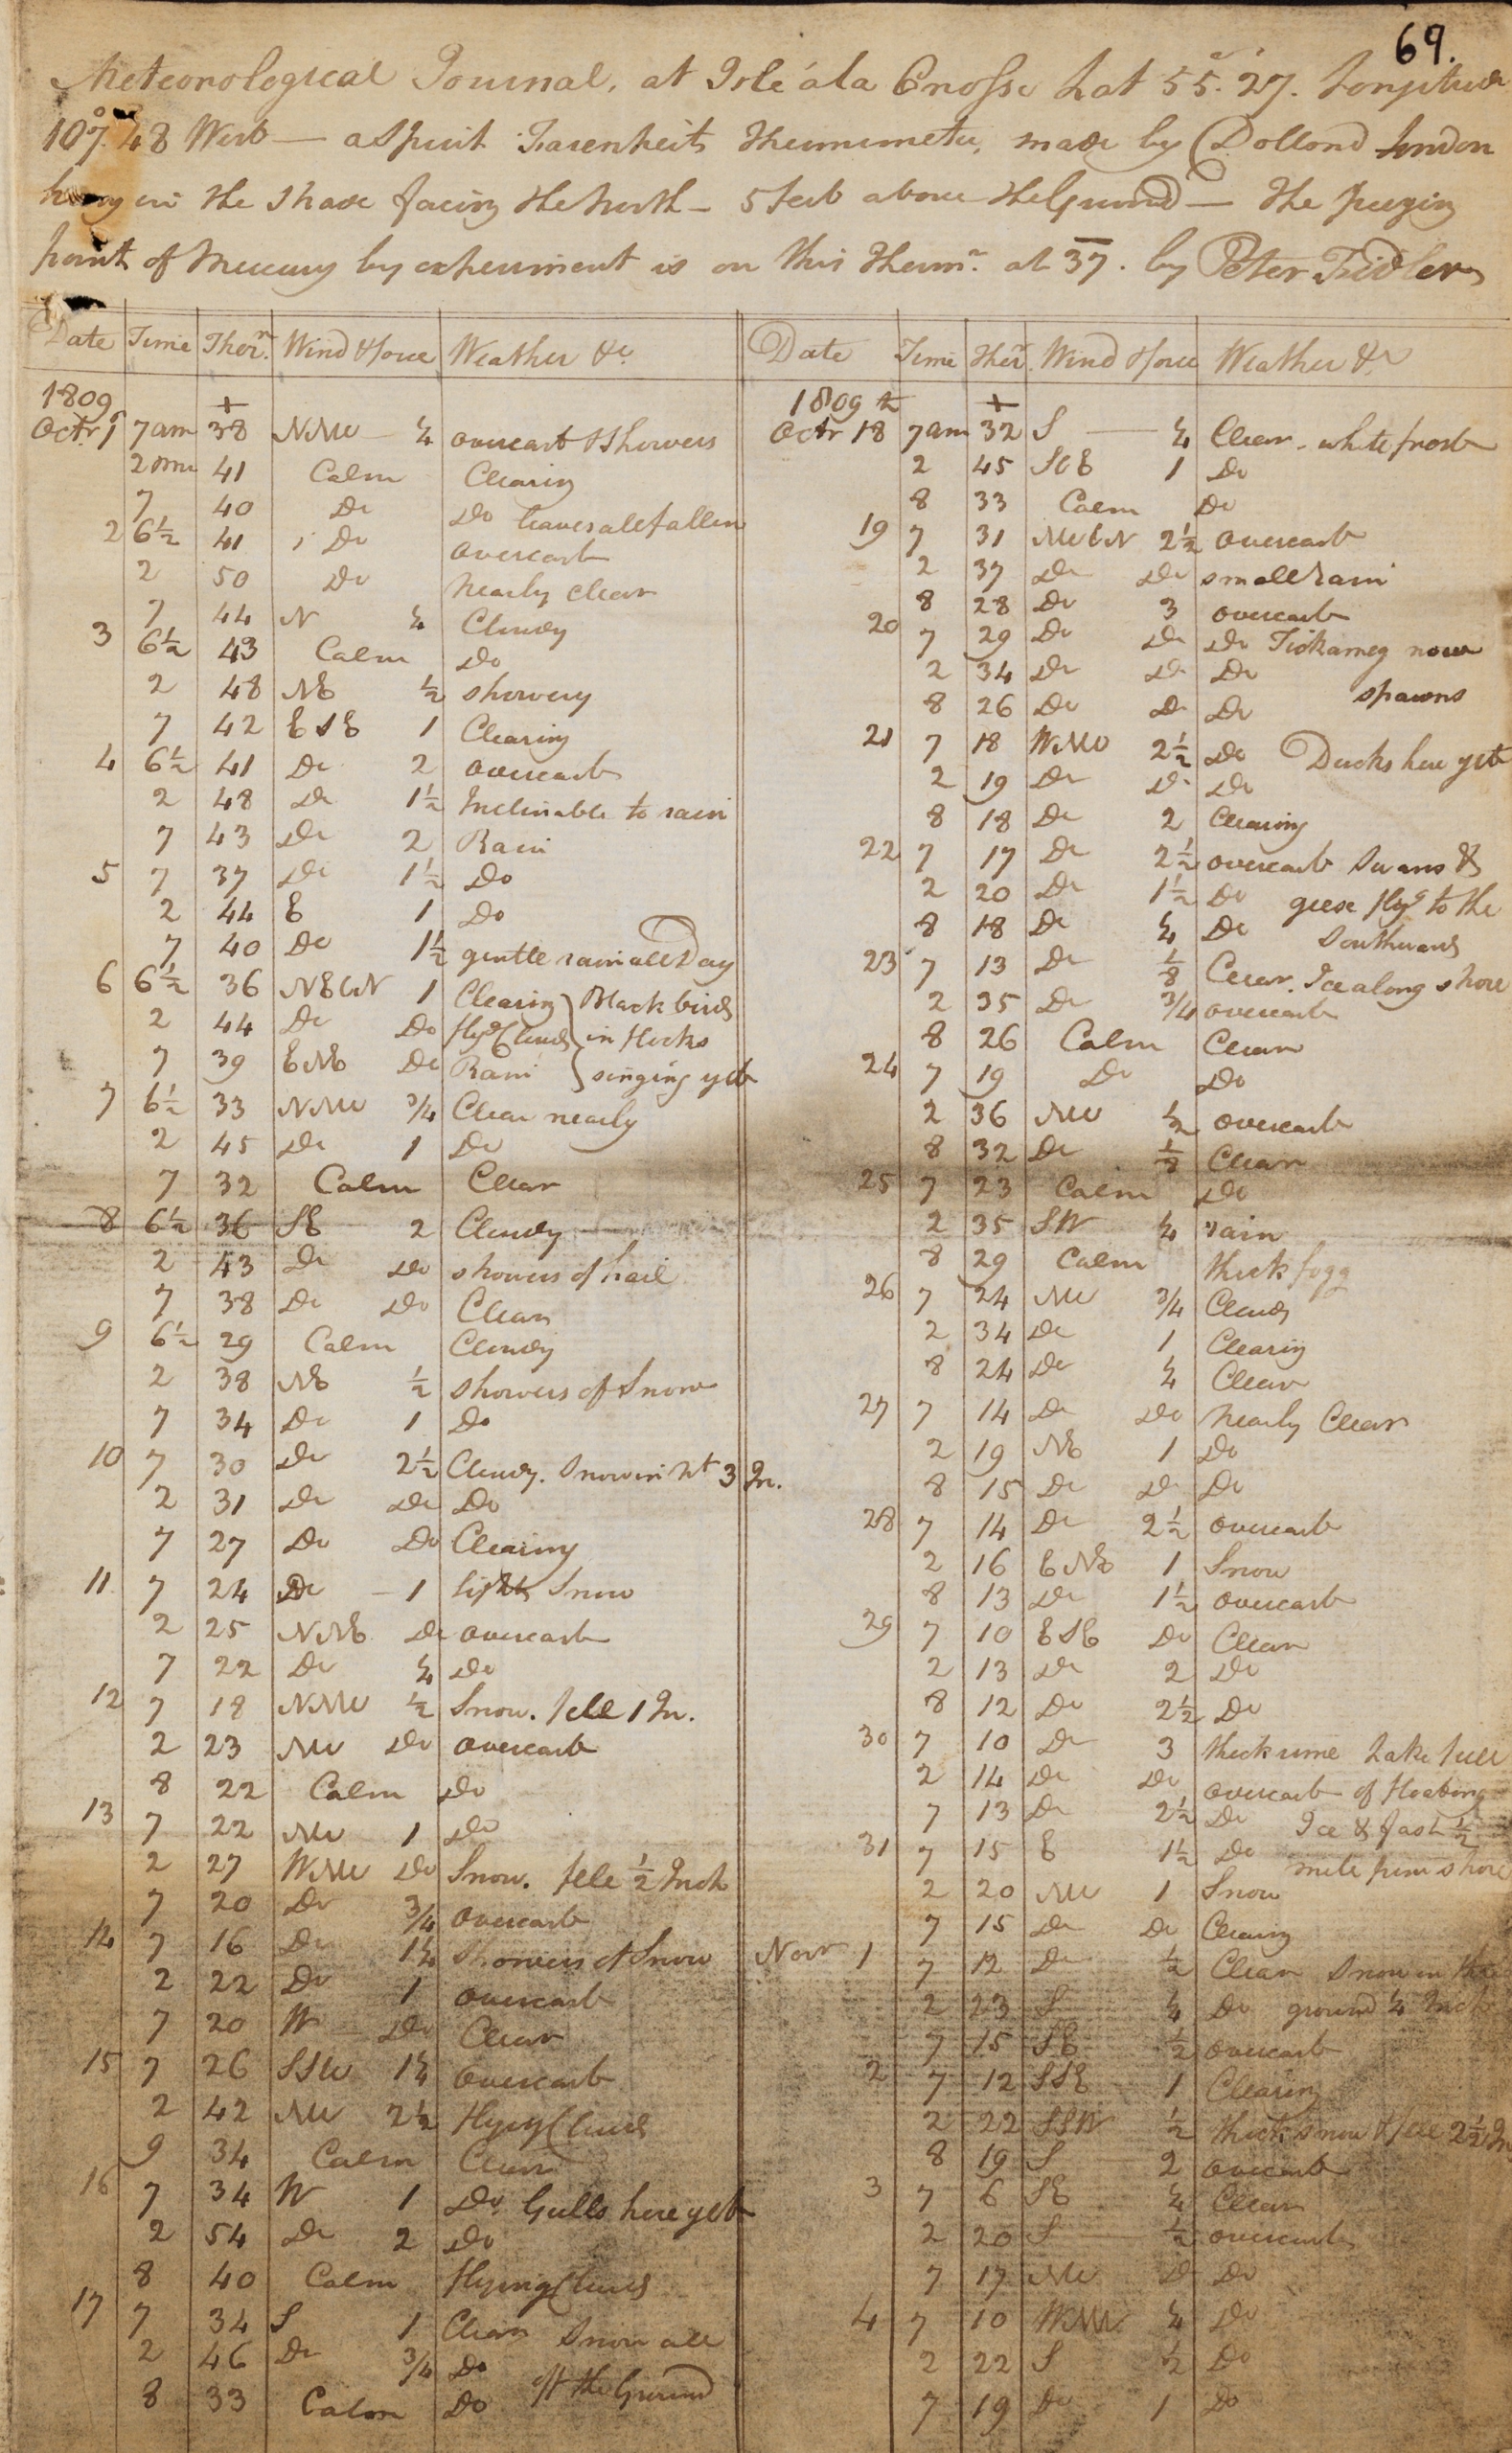 69.
Meteorological Journal, at Isle à la Crosse Lat 55°. 27'. Longitude
107°. 48 West — a Spirit Farenheits Thermometer, made by Dollond London
hung in the Shade facing the North — 5 feet above the Ground — The freezing
point of Mercury by experiment is on this Thermr. at 37. by Peter Fidler
Date Time Thermr. Wind & force Weather &c.
1809 +
Octr 1 7am 38 NNW — ¼ overcast & Showers
2 pm 41 Calm Clearing
7 40 Do Do leaves all fallen
2 6½ 41 Do overcast
2 50 Do nearly clear
7 44 N ¼ Cloudy
3 6½ 43 Calm Do
2 48 NE ½ showery
7 42 ESE 1 Clearing
4 6½ 41 Do 2 overcast
2 48 Do 1½ Inclinable to rain
7 43 Do 2 Rain
5 7 37 Do 1½ Do
2 44 E 1 Do
7 40 Do 1½ gentle rain all Day
6 6½ 36 NEbN 1 Clearing } Black birds
2 44 Do Do flyg Clouds } in flocks
7 39 ENE Do Rain } singing yet
7 6½ 33 NNW ¾ Clear nearly
2 45 Do 1 Do
7 32 Calm Clear
8 6½ 36 SE 2 Cloudy
2 43 Do Do showers of hail
7 38 Do Do Clear
9 6½ 29 Calm Cloudy
2 38 NE ½ showers of Snow
7 34 Do 1 Do
10 7 30 Do 2½ Cloudy. Snow in Nt 3 In.
2 31 Do Do Do
7 27 Do Do Clearing
11 7 24 Do — 1 light Snow
2 25 NNE Do overcast
7 22 Do ¼ Do
12 7 18 NNW ½ Snow. fell 1 In.
2 23 NW Do overcast
8 22 Calm Do
13 7 22 NW 1 Do
2 27 WNW Do Snow. fell ½ Inch
7 20 Do ¾ overcast
14 7 16 Do 1¼ Showers of Snow
2 22 Do 1 overcast
7 20 W Do Clear
15 7 26 SSW 1¼ overcast
2 42 NW 2½ flying Clouds
9 34 Calm Clear
16 7 34 W 1 Do. Gulls here yet
2 54 Do 2 Do
8 40 Calm flying Clouds
17 7 34 S 1 Clear Snow all
2 46 Do ¾ Do off the Ground
8 33 Calm Do
Date Time Ther. Wind & force Weather &c
1809 +
Octr 18 7am 32 S — ¼ Clear. white frost
2 45 SbE 1 Do
8 33 Calm Do
19 7 31 NWbN 2½ overcast
2 37 Do Do small rain
8 28 Do 3 overcast
20 7 29 Do Do Do Tickameg now
2 34 Do Do Do
spawns
8 26 Do Do Do
21 7 18 WNW 2½ Do Ducks here yet
2 19 Do Do Do
8 18 Do 2 Clearing
22 7 17 Do 2½ overcast Swans &
2 20 Do 1½ Do geese flyg to the
8 18 Do ¼ Do Southward
23 7 13 Do ⅛ Clear. Ice along shore
2 35 Do ¾ overcast
8 26 Calm Clear
24 7 19 Do Do
2 36 NW ½ overcast
8 32 Do ½ Clear
25 7 23 Calm Do
2 35 SW ¼ rain
8 29 Calm thick fogg
26 7 24 NW ¾ Cloudy
2 34 Do 1 Clearing
8 24 Do ¼ Clear
27 7 14 Do Do nearly Clear
2 19 NE 1 Do
8 15 Do Do Do
28 7 14 Do 2½ overcast
2 16 ENE 1 Snow
8 13 Do 1½ overcast
29 7 10 ESE Do Clear
2 13 Do 2 Do
8 12 Do 2½ Do
30 7 10 Do 3 thick rime Lake full
2 14 Do Do overcast of floating
7 13 Do 2½ Do Ice & fast ½
31 7 15 E 1½ Do mile from shore
2 20 NW 1 Snow
7 15 Do Do Clearing
Novr 1 7 12 Do ½ Clear Snow on the
2 23 S ¼ Do ground ¼ Inch
7 15 SE ½ overcast
2 7 12 SSE 1 Clearing
2 22 SSW ½ thick snow & fell 2½ In
8 19 S 2 overcast
3 7 6 SE ¼ Clear
2 20 S ½ overcast
7 17 NW Do Do
4 7 10 WNW ¼ Do
2 22 S ½ Do
7 19 Do 1 Do